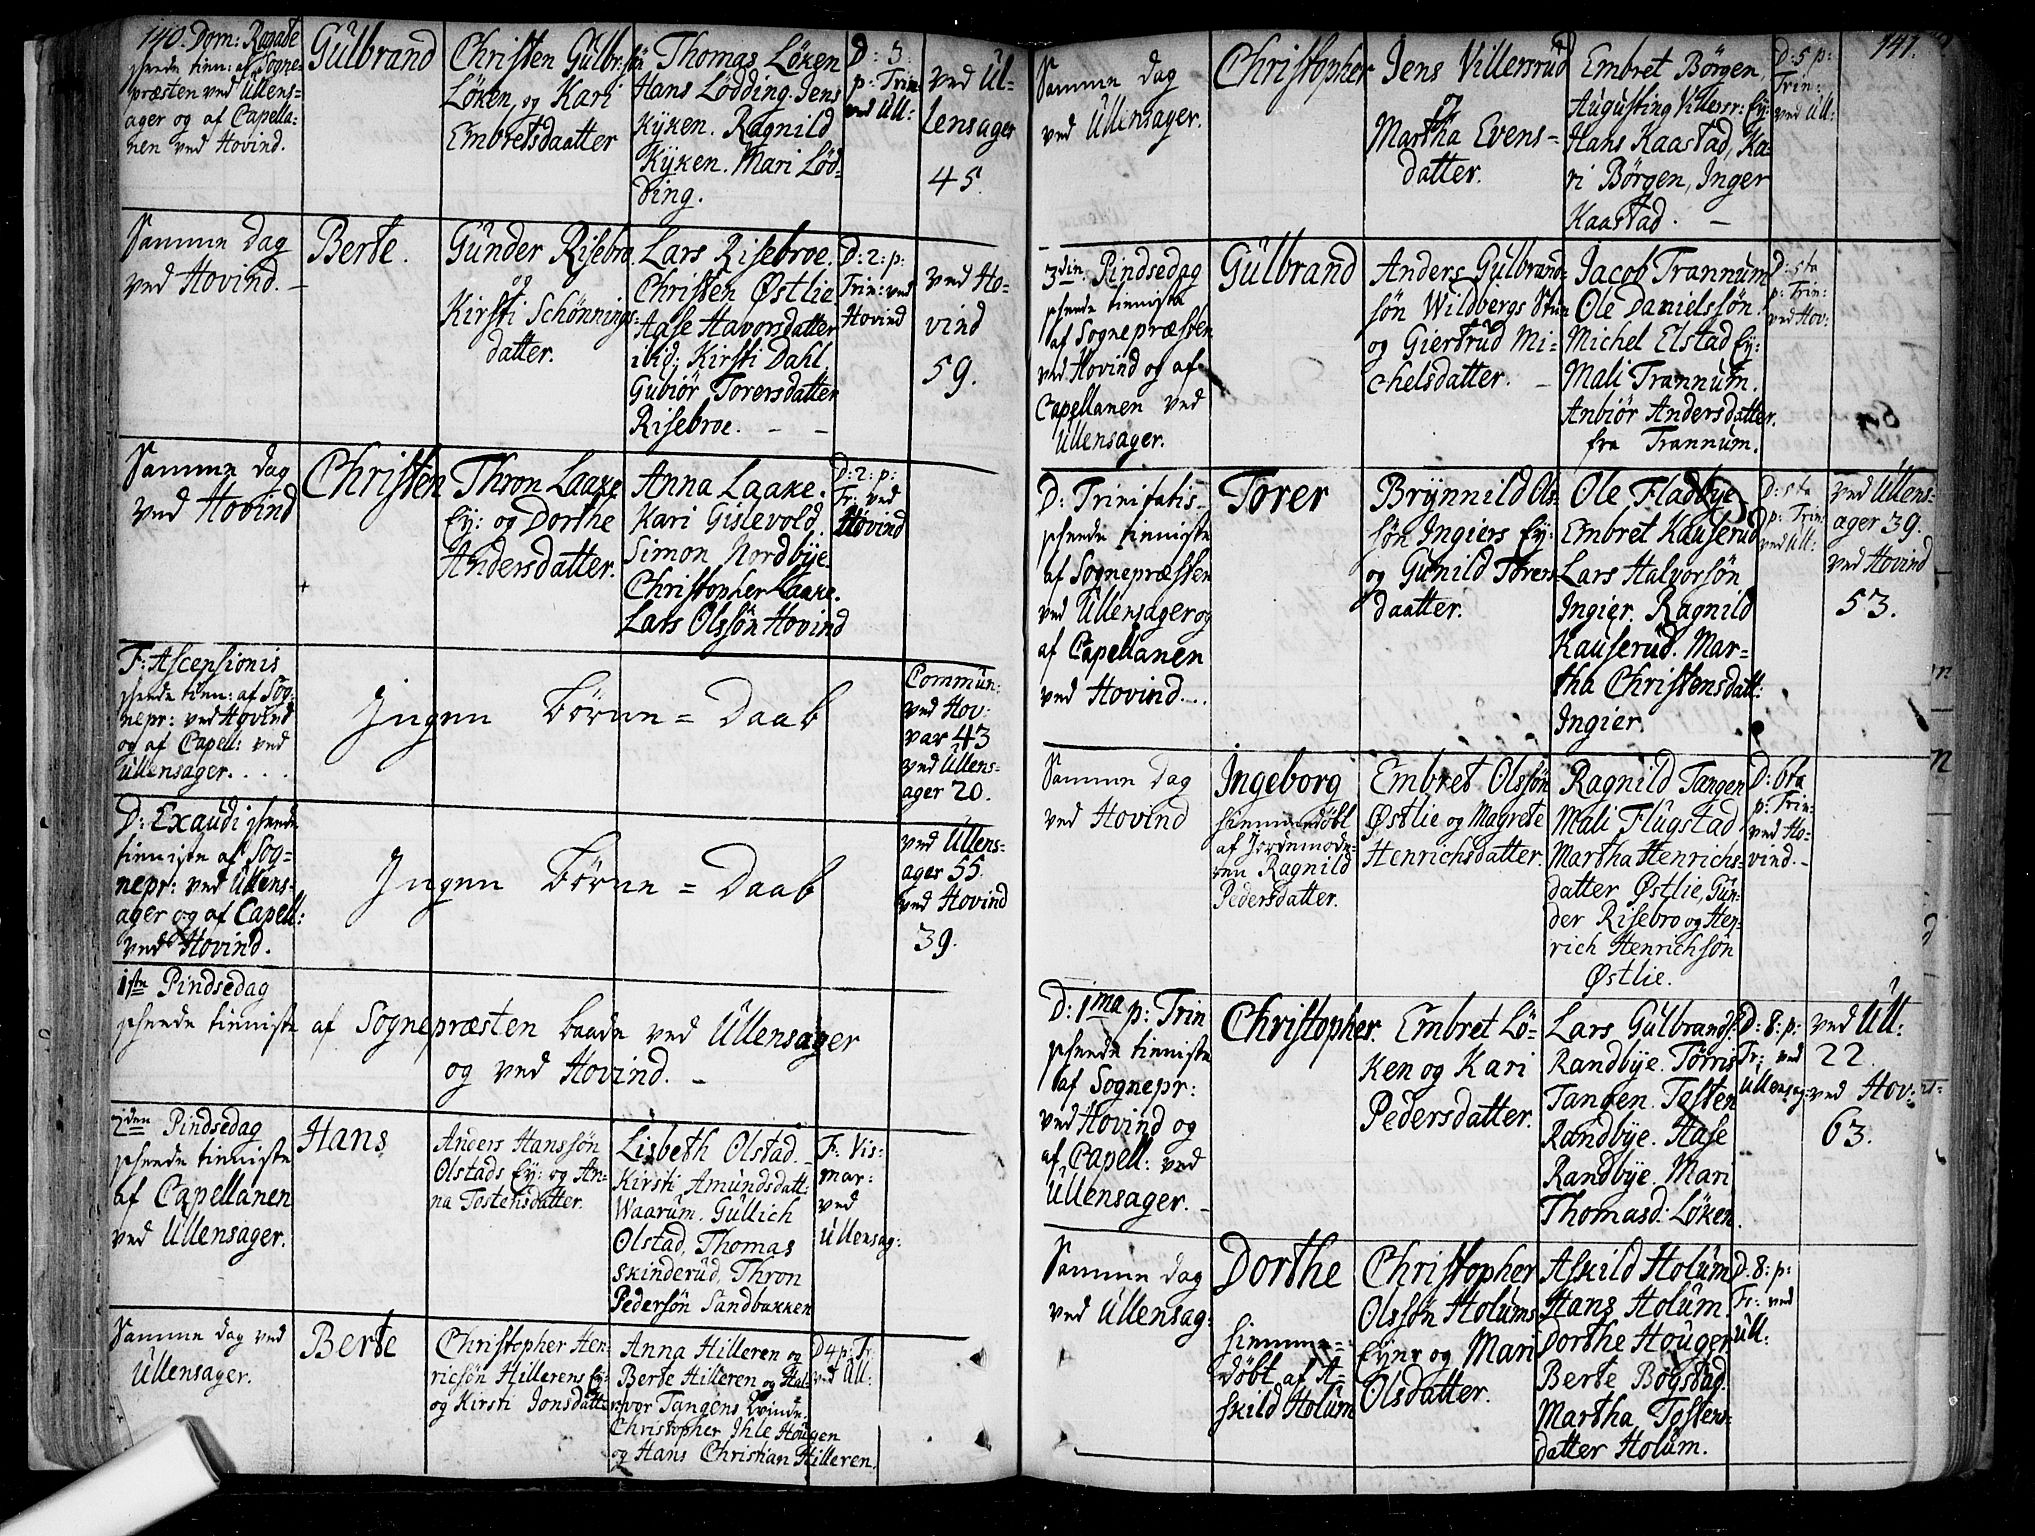 140. Dom: Rogate
skeede tien: af Sogne-
præsten ved Ullens-
ager og af Capella-
nen ved Hovind.
Gulbrand
Christen Gulbr:sön
Löken, og Kari
Embretsdaatter
Thomas Löken
Hans Lödding. Jens
Kyken. Ragnild
Kyken. Mari Löd-
ding.
D: 3.
p: Trin:
ved Ull:
ved Ul-
lensager
45.
Samme dag
ved Hovind.
Berte.
Gunder Risebro
og
Kirsti Schønnings-
datter.
Lars Risebroe.
Christen Østlie
Aase Havorsdatter
ibid; Kirsti Dahl,
Gubiør Torersdatter
Risebroe.
D: 2: p:
Trin: ved
Hovind
ved Ho-
vind
59.
Samme dag
ved Hovind
Christen
Thron Laake
Ey: og Dorthe
Andersdatter.
Anna Laake.
Kari Gislevold.
Simon Nordbye.
Christopher Laake.
Lars Olssön Hovind
D: 2: p:
Tr: ved
Hovind
F: Ascensionis
skeede tien: af Sog-
nepr: ved Hovind
og af Capell: ved
Ullensager.
Ingen Börne = Daab
Commun:
ved Hov:
var 43
ved Ullens-
ager 20.
D: Exaudi skeede
tieniste af Sog-
nepr: ved Ullens-
ager og af Capell:
ved Hovind.
Ingen Börne = Daab
ved Ullens-
ager 55.
ved Hovind
39.
1ste Pindsedag
skeede tieniste af Sognepræsten baade ved Ullensager
og ved Hovind.
2den Pindsedag
skeede tieniste
af Capellanen
ved Ullensager.
Hans
Anders Hanssön
Olstads Ey: og An-
na Tostensdatter.
Lisbeth Olstad.
Kirsti Amundsdatt:
Waarum. Gullich
Olstad, Thomas
Skinderud, Thron
Pedersön Sandbakken
F: Vis-
mar:
ved
Ullensag:
Samme dag ved
Ullensager.
Berte
Christopher Hen-
ricsön Hillerens Ey:
og Kirsti Jonsdatter
Anna Hilleren og
Berte Hilleren og Hal-
vor Tangens Qvinde.
Christopher Ihle Hougen
og Hans Christian Hilleren.
D 4 p: Tr:
ved Ull:
141.
Samme dag
ved Ullensager.
Christopher
Jens Villersrud
og
Martha Evens-
datter.
Embret Börgen,
Augusting Villersr: Ey:
Hans Kaastad, Ka-
ri Börgen, Inger
Kaastad.
D: 5 p:
Trin:
ved Ull:
3die Pindsedag
skeede tieniste
af Sognepræsten
ved Hovind og af
Capellanen ved
Ullensager.
Gulbrand
Anders Gulbrand-
sön Wildbergs
og Giertrud Mi-
chelsdatter.
Jacob Trannum
Ole Danielssön.
Michel Elstad Ey:
Mali Trannum.
Anbiör Andersdatter.
fra Trannum.
D: 5ta
p: Trin:
ved Hov:
D: Trinitatis
skeede tieniste
af Sognepræsten
ved Ullensager og
af Capellanen
ved Hovind.
Torer
Brynnild Ols-
sön Ingiers Ey:
og Gunild Torers-
daatter.
Ole Fladbye
Embret Kauserud
Lars Halvorsön
Ingier. Ragnild
Kauserud. Mar-
tha Christensdatt:
Ingier.
D: 5ta
p: Trin:
ved Ull:
ved Ullens-
ager 39.
ved Hovind
53.
Samme dag
ved Hovind
Ingeborg
hiemmedöbt
af Jordemode-
ren Ragnild
Pedersdatter.
Embret Olssön
Østlie og Magrete
Henrichsdatter.
Ragnild Tangen
Mali Flugstad
Martha Henrichs-
datter Østlie, Gun-
der Risebro og Hen-
rich Henrichsön
Østlie.
D: 6ta
p: Trin:
ved Ho-
vind.
D: 1ma p: Trin
skeede tieniste
af Sognepr:
ved Hovind og
af Capell: ved
Ullensager.
Christopher.
Embret Lö-
ken og Kari
Pedersdatter.
Lars Gulbrands:
Randbye. Törris
Tangen. Tosten
Randbye. Aase
Randbye. Mari
Thomasd. Löken.
D: 8: p:
Tr: ved
Ullensag:
ved Ull:
22.
ved Hov:
63.
Samme dag
ved Ullensag:
Dorthe
hiemme-
döbt af A-
skild Holum
Christopher
Olssön Holums
Eyer og Mari
Olsdatter.
Askild Holum
Hans Holum.
Dorthe Houger
Berte Bogstad.
Martha Tostens-
datter Holum.
D. 8: p:
Tr: ved
Ull: